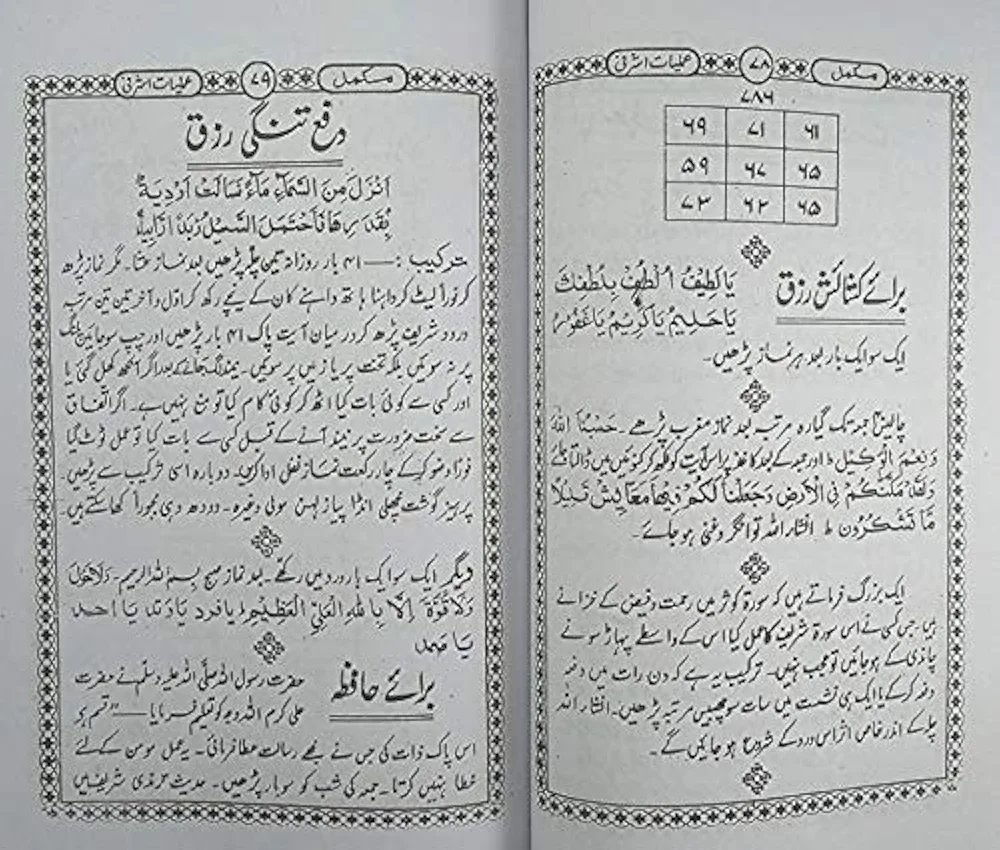 مکمل ۷۸ عملیات اشرفی
۷۸۶
۶۹ ۷۱ ۶۱
۵۹ ۶۷ ۶۵
۷۳ ۶۳ ۶۵
برائے کشائش رزق
یَا لَطِیْفُ اُلْطُفْ بِلُطْفِكَ
یَا حَلِیْمُ یَا کَرِیْمُ یَا غَفُوْرُ
ایک سو ایک بار بعد ہر نماز پڑھیں۔
چالیس جمعہ تک گیارہ مرتبہ بعد نماز مغرب پڑھے۔ حَسْبُنَا اللّٰہُ
وَنِعْمَ الْوَکِیْلُ ط اور جمعہ کے بعد کاغذ پر اس آیت کو لکھ کر کنوئیں میں ڈالتا چلے
وَلَقَدْ مَكَّنّٰكُمْ فِی الْاَرْضِ وَجَعَلْنَا لَكُمْ فِیْهَا مَعَایِشَ قَلِیْلًا
مَّا تَشْكُرُوْن ط انشاء اللہ تو انگر و غنی ہو جائے۔
ایک بزرگ فرماتے ہیں کہ سورۃ کوثر میں رحمت و فیض کے خزانے
ہیں، جس کسی نے اس سورۃ شریف کا عمل کیا اس کے واسطے پہاڑ سونے
چاندی کے ہو جائیں تو عجب نہیں۔ ترکیب یہ ہے کہ دن رات میں دفعہ
دفعہ کر کے یا ایک ہی نشست میں سات سو پچیس مرتبہ پڑھیں۔ انشاء اللہ
چلہ کے اندر خاص اثر اس ورد کے شروع ہو جائیں گے۔
مکمل ۷۹ عملیات اشرفی
دفع تنگی رزق
اَنْزَلَ مِنَ السَّمَآءِ مَآءً فَسَالَتْ اَوْدِیَةٌۢ
بِقَدَرِهَا فَاحْتَمَلَ السَّیْلُ زَبَدًا رَّابِیًا
ترکیب :— ۴۱ بار روزانہ تین چلّہ پڑھیں بعد نماز عشاء۔ مگر نماز پڑھ
کر فوراً لیٹ کر داہنا ہاتھ داہنے کان کے نیچے رکھ کر اوّل و آخر تین تین مرتبہ
درود شریف پڑھ کر درمیان آیت پاک ۴۱ بار پڑھیں اور چپ سو جائیں پلنگ
پر نہ سوئیں بلکہ تخت پر یا زمین پر سوئیں۔ نیند لگ جانے کے بعد اگر آنکھ کھل گئی یا
اور کسی سے کوئی بات کیا اٹھ کر کوئی کام کیا تو منع نہیں ہے۔ اگر اتفاق
سے سخت ضرورت پر نیند آنے کے قبل کسی سے بات کیا تو عمل ٹوٹ گیا
فوراً وضو کر کے چار رکعت نماز نفل ادا کریں۔ دوبارہ اسی ترکیب سے پڑھیں
پرہیز گوشت مچھلی انڈا پیاز لہسن مولی وغیرہ۔ دودھ دہی مجبوراً کھا سکتے ہیں۔
دیگر ایک سو ایک بار ورد میں رکھے۔ بعد نماز صبح بسم اللہ الرحیم۔ وَلَا حَوْلَ
وَلَا قُوَّةَ اِلَّا بِاللّٰهِ الْعَلِیِّ الْعَظِیْمِ یا فرد یا وتد یا احد
یا صمد
برائے حافظہ
حضرت رسول اللہ صلی اللہ علیہ وسلم نے حضرت
علی کرم اللہ وجہہ کو تعلیم فرمایا — "قسم ہے
اس پاک ذات کی جس نے مجھے رسالت عطا فرمائی۔ یہ عمل مومن کے لئے
خطا نہیں کرتا۔ جمعہ کی شب کو سو بار پڑھیں۔ حدیث ترمذی شریف میں